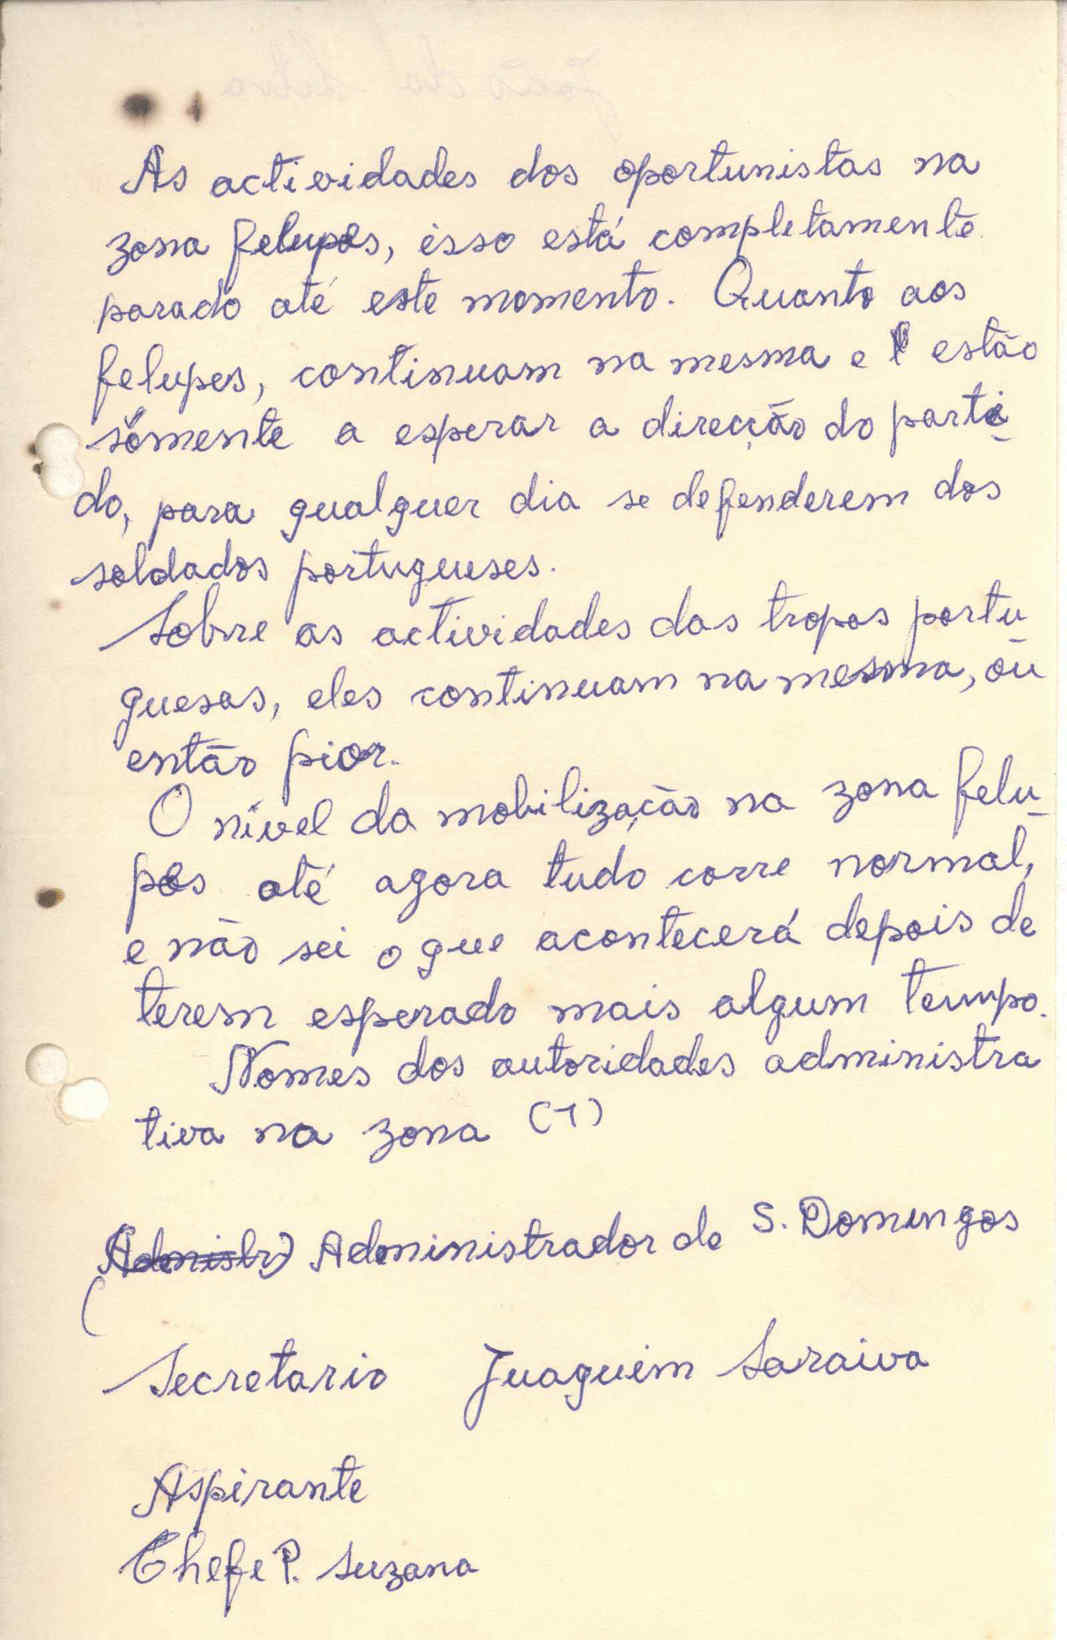 As actividades dos oportunistas na
zona felupes, isso está completamente
parado até este momento. Quanto aos
felupes, continuam na mesma e estão
sòmente a esperar a direcção do parti-
do, para qualquer dia se defenderem dos
soldados portugueses.
Sobre as actividades das tropas portu-
guesas, eles continuam na mesma, ou
então pior.
O nível da mobilização na zona felu-
pes até agora tudo corre normal,
e não sei o que acontecerá depois de
terem esperado mais algum tempo.
Nomes dos autoridades administra
tiva na zona (1)
Administrador de S. Domingos
Secretario Juaquim Saraiva
Aspirante
Chefe P. Suzana